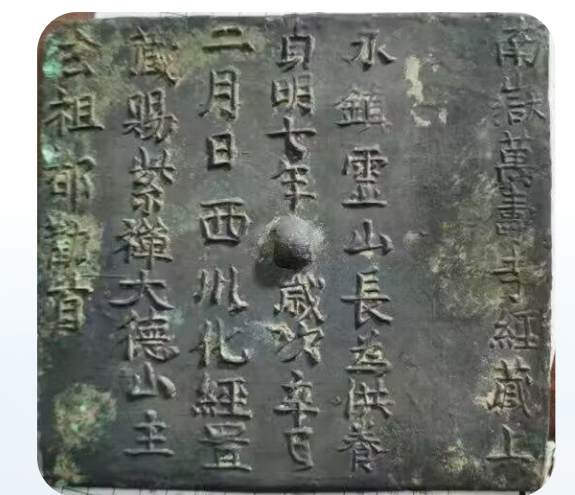 南嶽萬壽寺經藏上
永鎮靈山長為供養
貞明七年歲次辛巳
二月日西川化經置
藏賜紫禪大德山主
玄祖都勸首